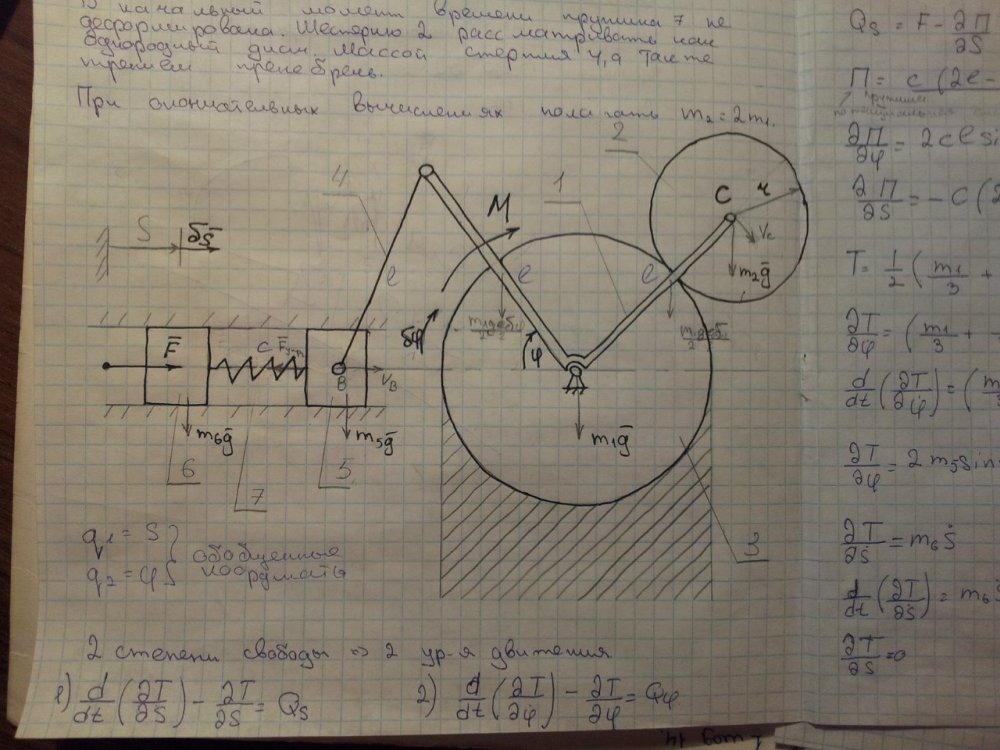 В начальный момент времени пружина 7 не
деформирована. Шестерню 2 рассматривать как
однородный диск. Массой стержня 4, а также
трением пренебречь.
При окончательных вычислениях полагать m₂=2m₁.
S
δs̄
4
M
1
2
C
r
V_C
m₂ḡ
l
l
l
δφ
φ
F̄
C
B
V_B
m₁ḡ
m₆ḡ
m₅ḡ
6
7
5
3
q₁ = S
q₂ = φ
обобщенные
координаты
2 степени свободы => 2 ур-я движения
1) d/dt (∂T/∂Ṡ) − ∂T/∂S = Q_S
2) d/dt (∂T/∂φ̇) − ∂T/∂φ = Q_φ
Q_S = F − ∂П/∂S
П = c (2l −
пружина
∂П/∂φ = 2cl si
∂П/∂S = −c (2
T = 1/2 ( m₁/3 +
∂T/∂φ̇ = ( m₁/3 +
d/dt (∂T/∂φ̇) = ( m
∂T/∂φ = 2 m₅ sin
∂T/∂Ṡ = m₆ Ṡ
d/dt (∂T/∂Ṡ) = m₆ S
∂T/∂S = 0